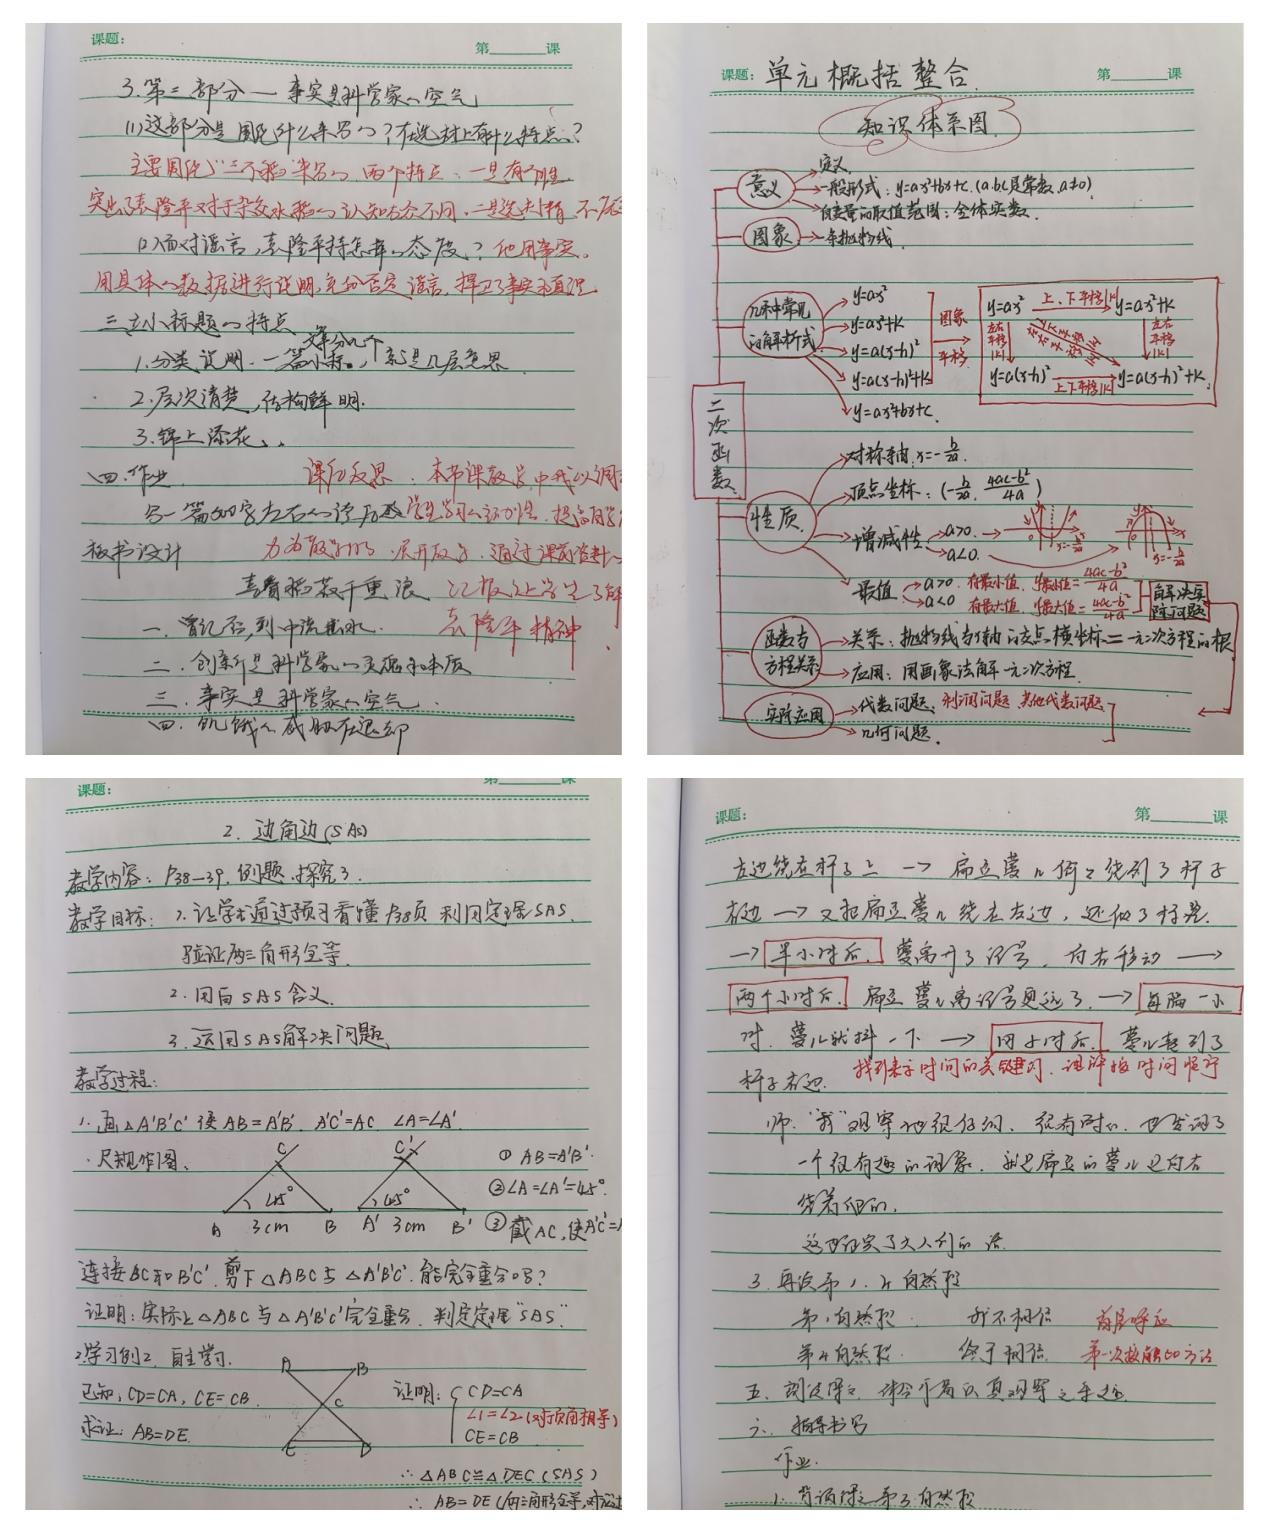 课题:
第____课
3.第三部分—事实是科学家的空气
(1)这部分是围绕什么来写的?在选材上有什么特点?
主要围绕"三个稻"来写的,两个特点:一是有
突出了袁隆平对于杂交水稻的认知状态不同,二是选材精
(2)面对谣言,袁隆平持怎样的态度?他用事实。
用具体的数据进行说明,充分否定谣言,捍卫了事实和真理
三.立小标题的特点
1.分类说明.一篇文章分几个小标。,就是几层意思
2.层次清楚,结构鲜明.
3.锦上添花.
四.作业
写一篇300字左右的读后感
课后反思:本节课教学中我以
板书设计
喜看稻菽千重浪
一.曾记否,到中流击水.
二.创新是科学家的灵魂和本质
三.事实是科学家的空气.
四.饥饿的威胁在退却
袁隆平精神.
课题: 单元概括整合.
第____课
知识体系图.
二次函数
意义
定义
一般形式:y=ax²+bx+c.(a.b.c是常数,a≠0)
自变量的取值范围:全体实数.
图象
一条抛物线.
几种常见的解析式
y=ax²
y=ax²+k
y=a(x-h)²
y=a(x-h)²+k
y=ax²+bx+c.
图象平移
y=ax² 上、下平移|k| y=ax²+k
左右平移|h|
左右平移|h|
y=a(x-h)² 上下平移|k| y=a(x-h)²+k.
性质.
对称轴:x=-b/2a.
顶点坐标:(-b/2a, 4ac-b²/4a)
增减性
a>0.
a<0.
x=-b/2a
x=-b/2a
最值
a>0 有最小值, y最小值=4ac-b²/4a
a<0 有最大值, y最大值=4ac-b²/4a
解决实际问题
函数与方程关系
关系:抛物线与x轴的交点横坐标=一元二次方程的根
应用:用画象法解一元二次方程.
实际应用
代数问题. 利润问题 其他代数问题
几何问题.
课题:
第____课
2. 边角边(SAS)
教学内容:P38—39.例题.探究3.
教学目标:1.让学生通过预习看懂P38页 利用定理SAS.
验证两三角形全等.
2.明白SAS含义.
3.运用SAS解决问题
教学过程:
1.画△A'B'C'使AB=A'B'. A'C'=AC ∠A=∠A'.
.尺规作图.
C
45°
A 3cm B
C'
45°
A' 3cm B'
① AB=A'B'.
②∠A=∠A'=45°.
③截AC,使A'C'=A
连接BC和B'C'.剪下△ABC与△A'B'C'.能完全重合吗?
证明:实际上△ABC与△A'B'C'完全重合.判定定理"SAS".
2.学习例2.自主学习.
已知:CD=CA, CE=CB.
求证:AB=DE.
A B
C
E D
证明: CD=CA
∠1=∠2(对顶角相等)
CE=CB
∴△ABC≌△DEC(SAS)
∴ AB=DE(两三角形全等,对应边
课题:
第____课
左边绕在杆子上 → 扁豆蔓儿绕到了杆子
右边 → 又把扁豆蔓儿绕在左边,还做了标志.
→ 半小时后. 蔓离开了记号,向右移动 →
两个小时后. 扁豆蔓儿离记号更远了. → 每隔一小
时.蔓儿就抖一下 → 四小时后. 蔓儿转到了
杆子右边. 找到表示时间的关键词.理解按时间顺序
师:"我"观察地很仔细.很有耐心.也发现了
一个很有趣的现象.就是扁豆的蔓儿是向右
绕着爬的.
这也证实了大人们的话.
3.再读第1.4自然段
第1自然段. 我不相信 首尾呼应
第4自然段. 终于相信.
五.
六.指导书写
作业.
1.背诵课文第3自然段